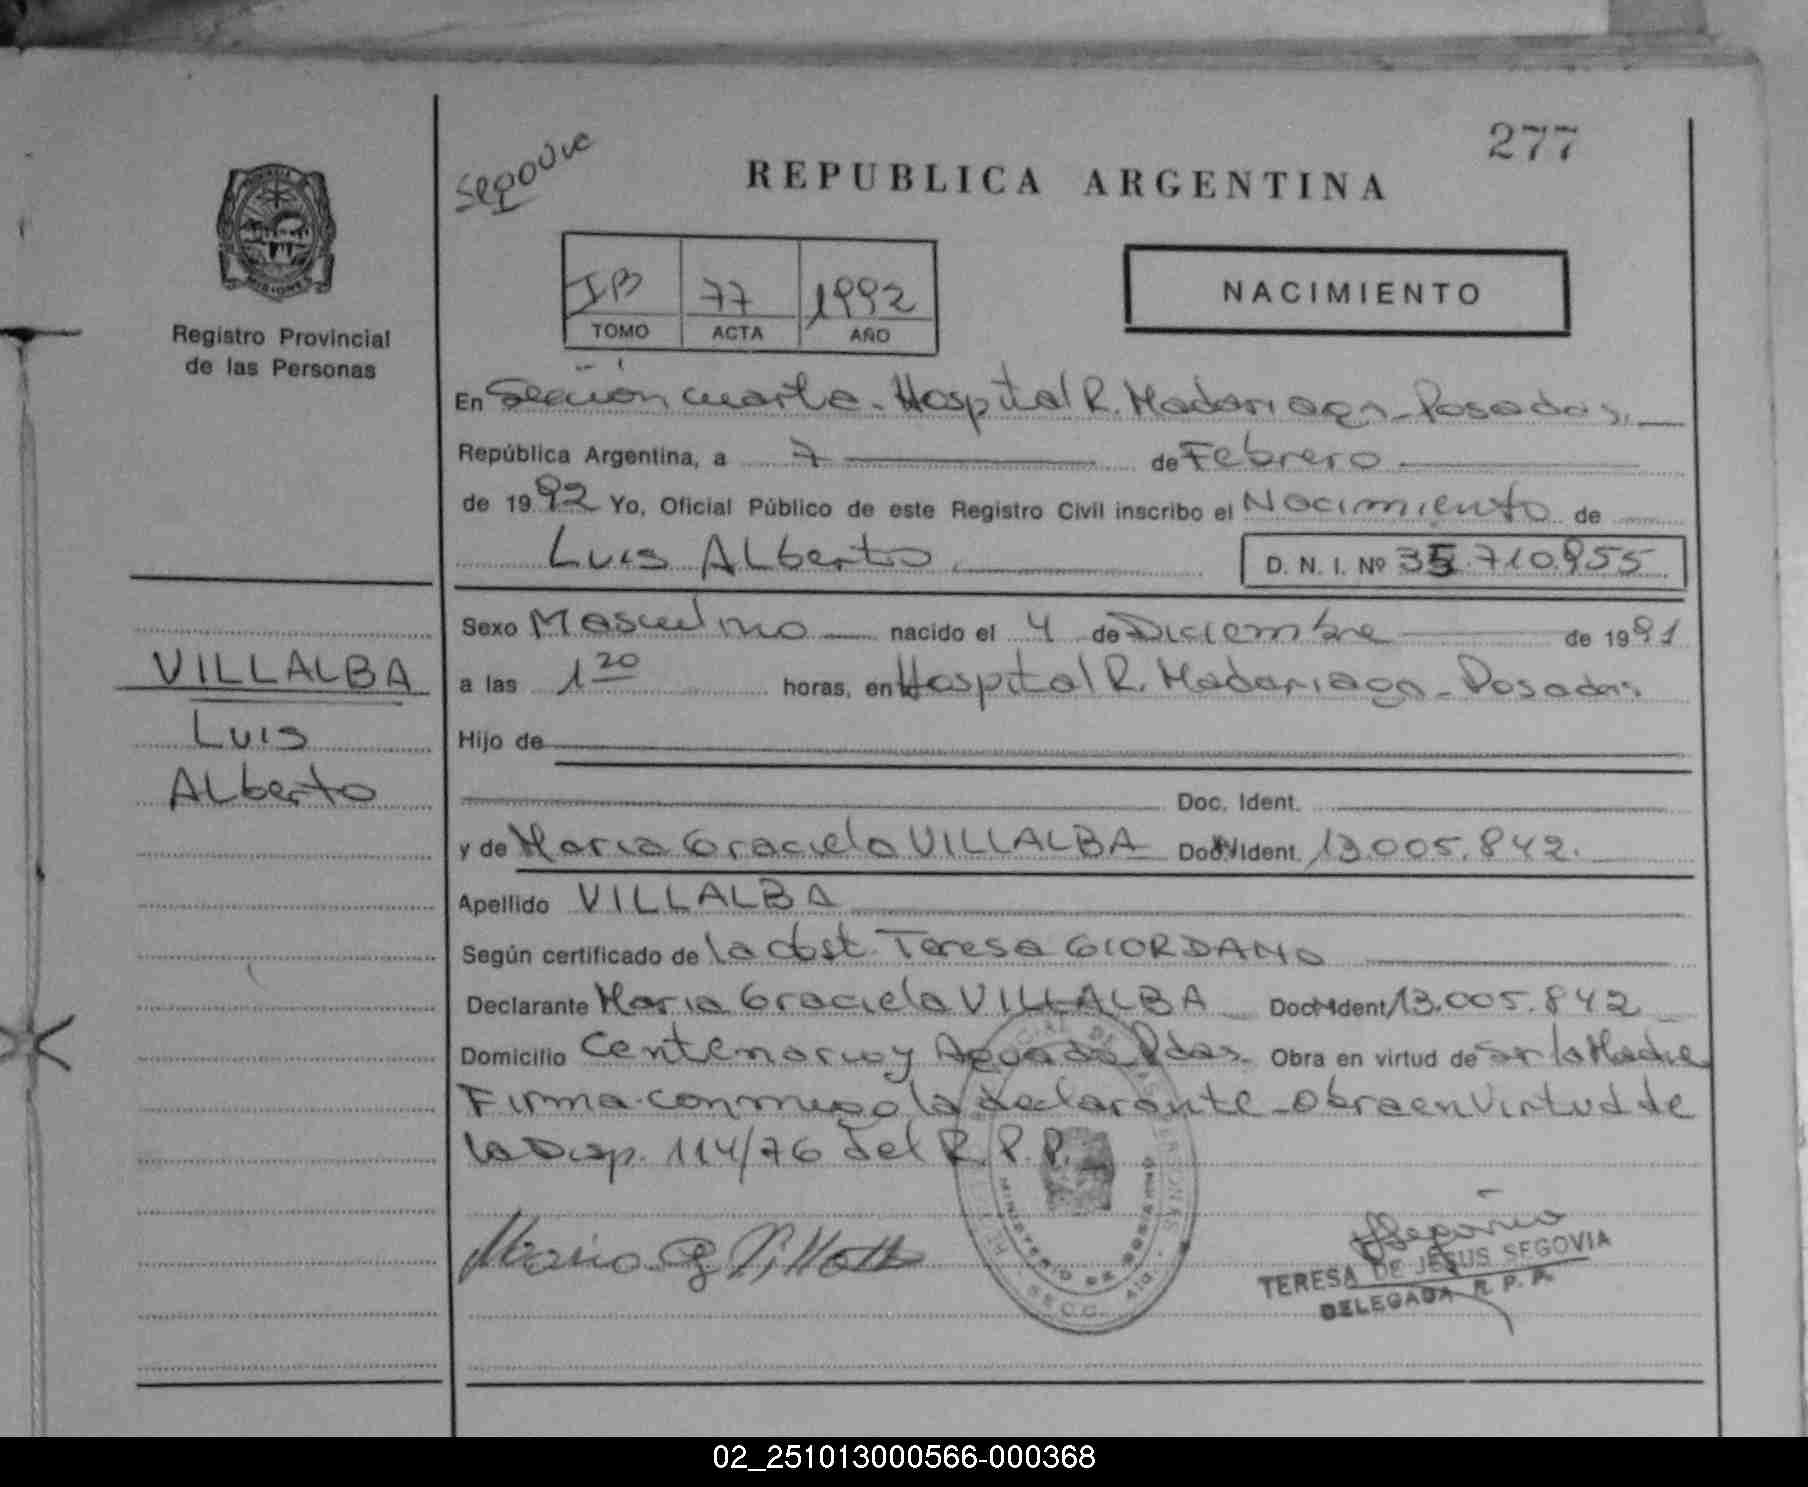 277
Segovia
REPUBLICA ARGENTINA
MISIONES
Registro Provincial
de las Personas
IB 77 1992
TOMO ACTA AÑO
NACIMIENTO
En Sección cuarta - Hospital R. Madariaga - Posadas.
República Argentina, a 7 de Febrero
de 1992 Yo, Oficial Público de este Registro Civil inscribo el Nacimiento de
Luis ALberto
D. N. I. Nº 35.710.955
VILLALBA
Luis
ALberto
Sexo Masculino nacido el 4 de Diciembre de 1991
a las 1 20 horas, en Hospital R. Madariaga - Posadas.
Hijo de
Doc. Ident.
y de Maria Graciela VILLALBA Doc. Ident. 13.005.842.
Apellido VILLALBA
Según certificado de la obst. Teresa GIORDANO
Declarante Maria Graciela VILLALBA Doc. Ident. 13.005.842
Domicilio Centenario y Aguado Pdas. Obra en virtud de ser la Madre
Firma conmigo la declarante - obra en virtud de
la Disp. 114/76 del R. P. P.
MINISTERIO DE GOBIERNO
SECC. 4ta.
TERESA DE JESUS SEGOVIA
DELEGADA R. P. P.
02_251013000566-000368